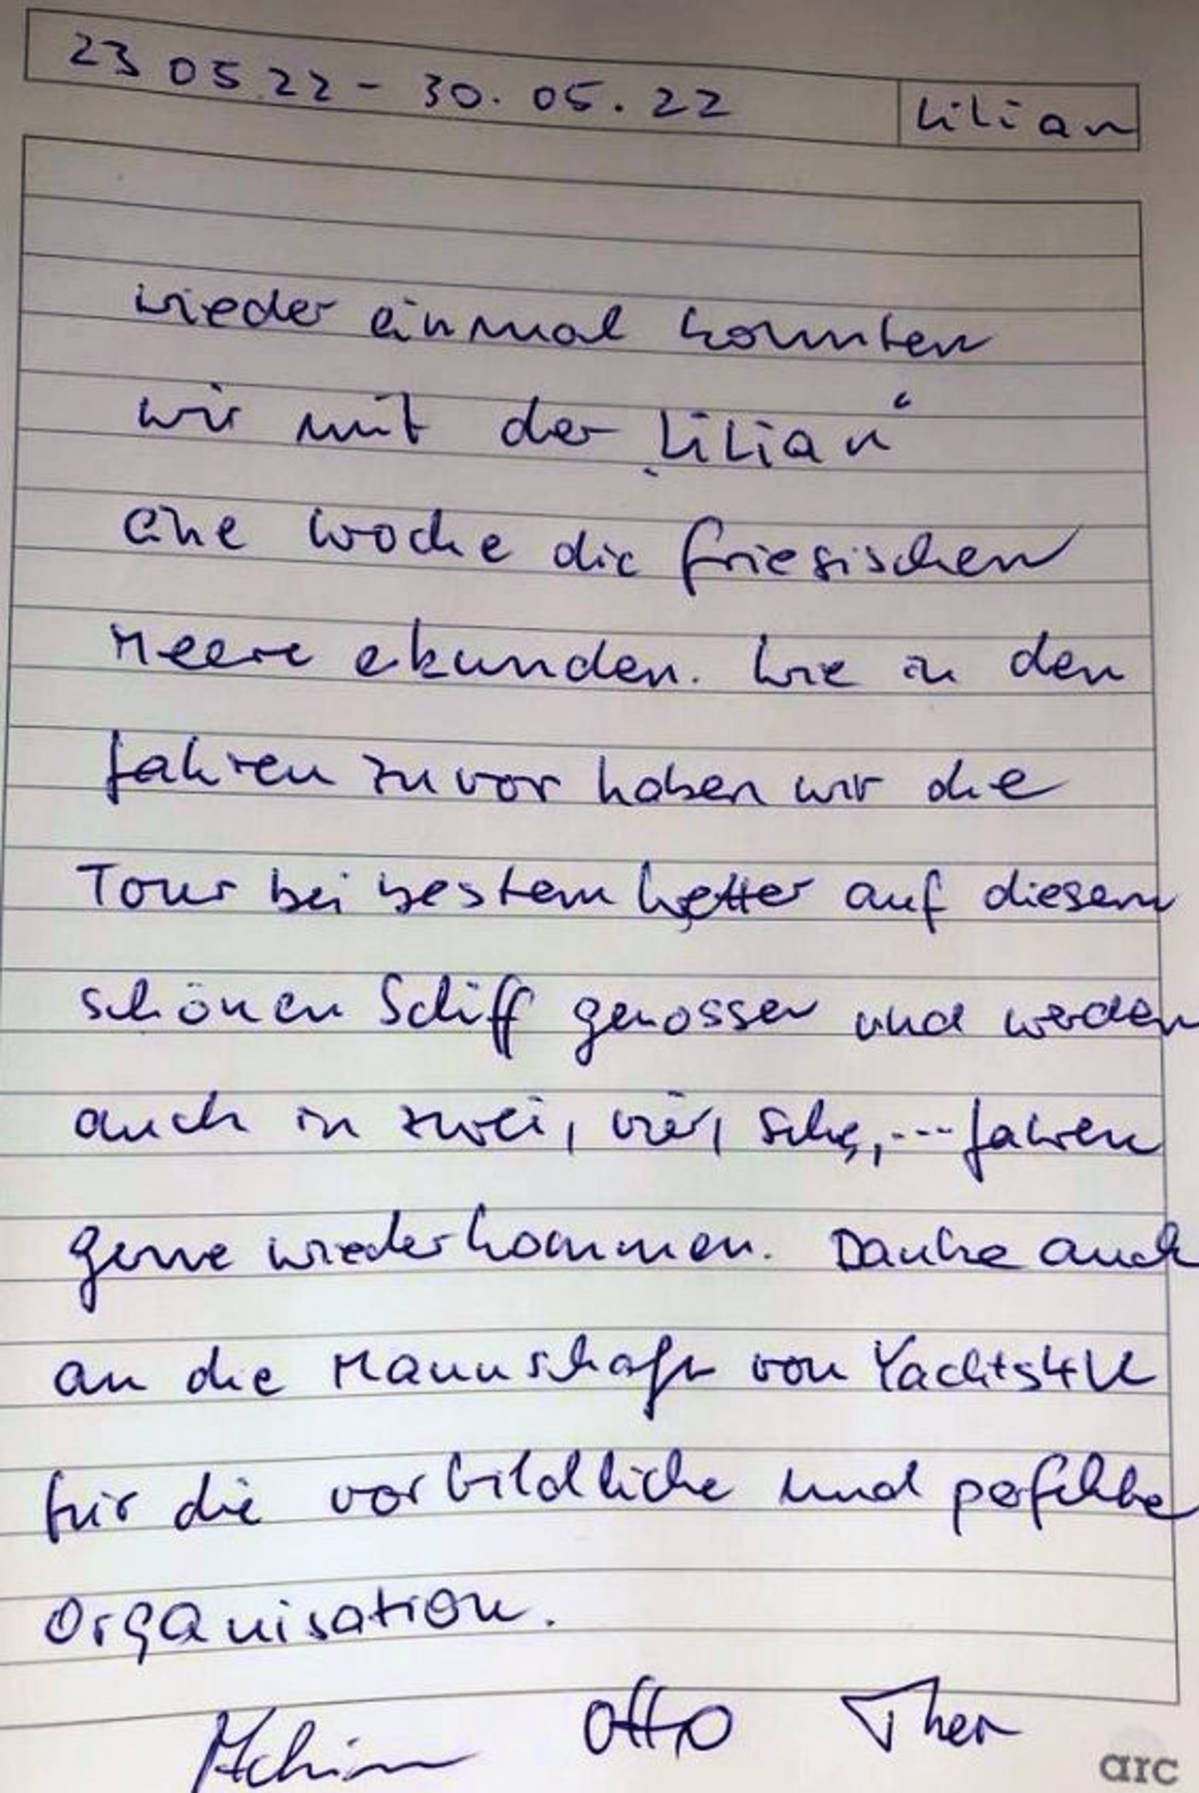 23 05 22 - 30. 05. 22
Lilian
wieder einmal konnten
wir mit der „Lilian“
eine Woche die friesischen
Meere ekunden. Wie in den
Jahren zuvor haben wir die
Tour bei bestem Wetter auf diesem
schönen Schiff genossen und werden
auch in zwei, vier, sechs, .... Jahren
gerne wiederkommen. Danke auch
an die Mannschaft von Yachts4U
für die vorbildliche und perfekte
Organisation.
Achim Otto Theo
arc